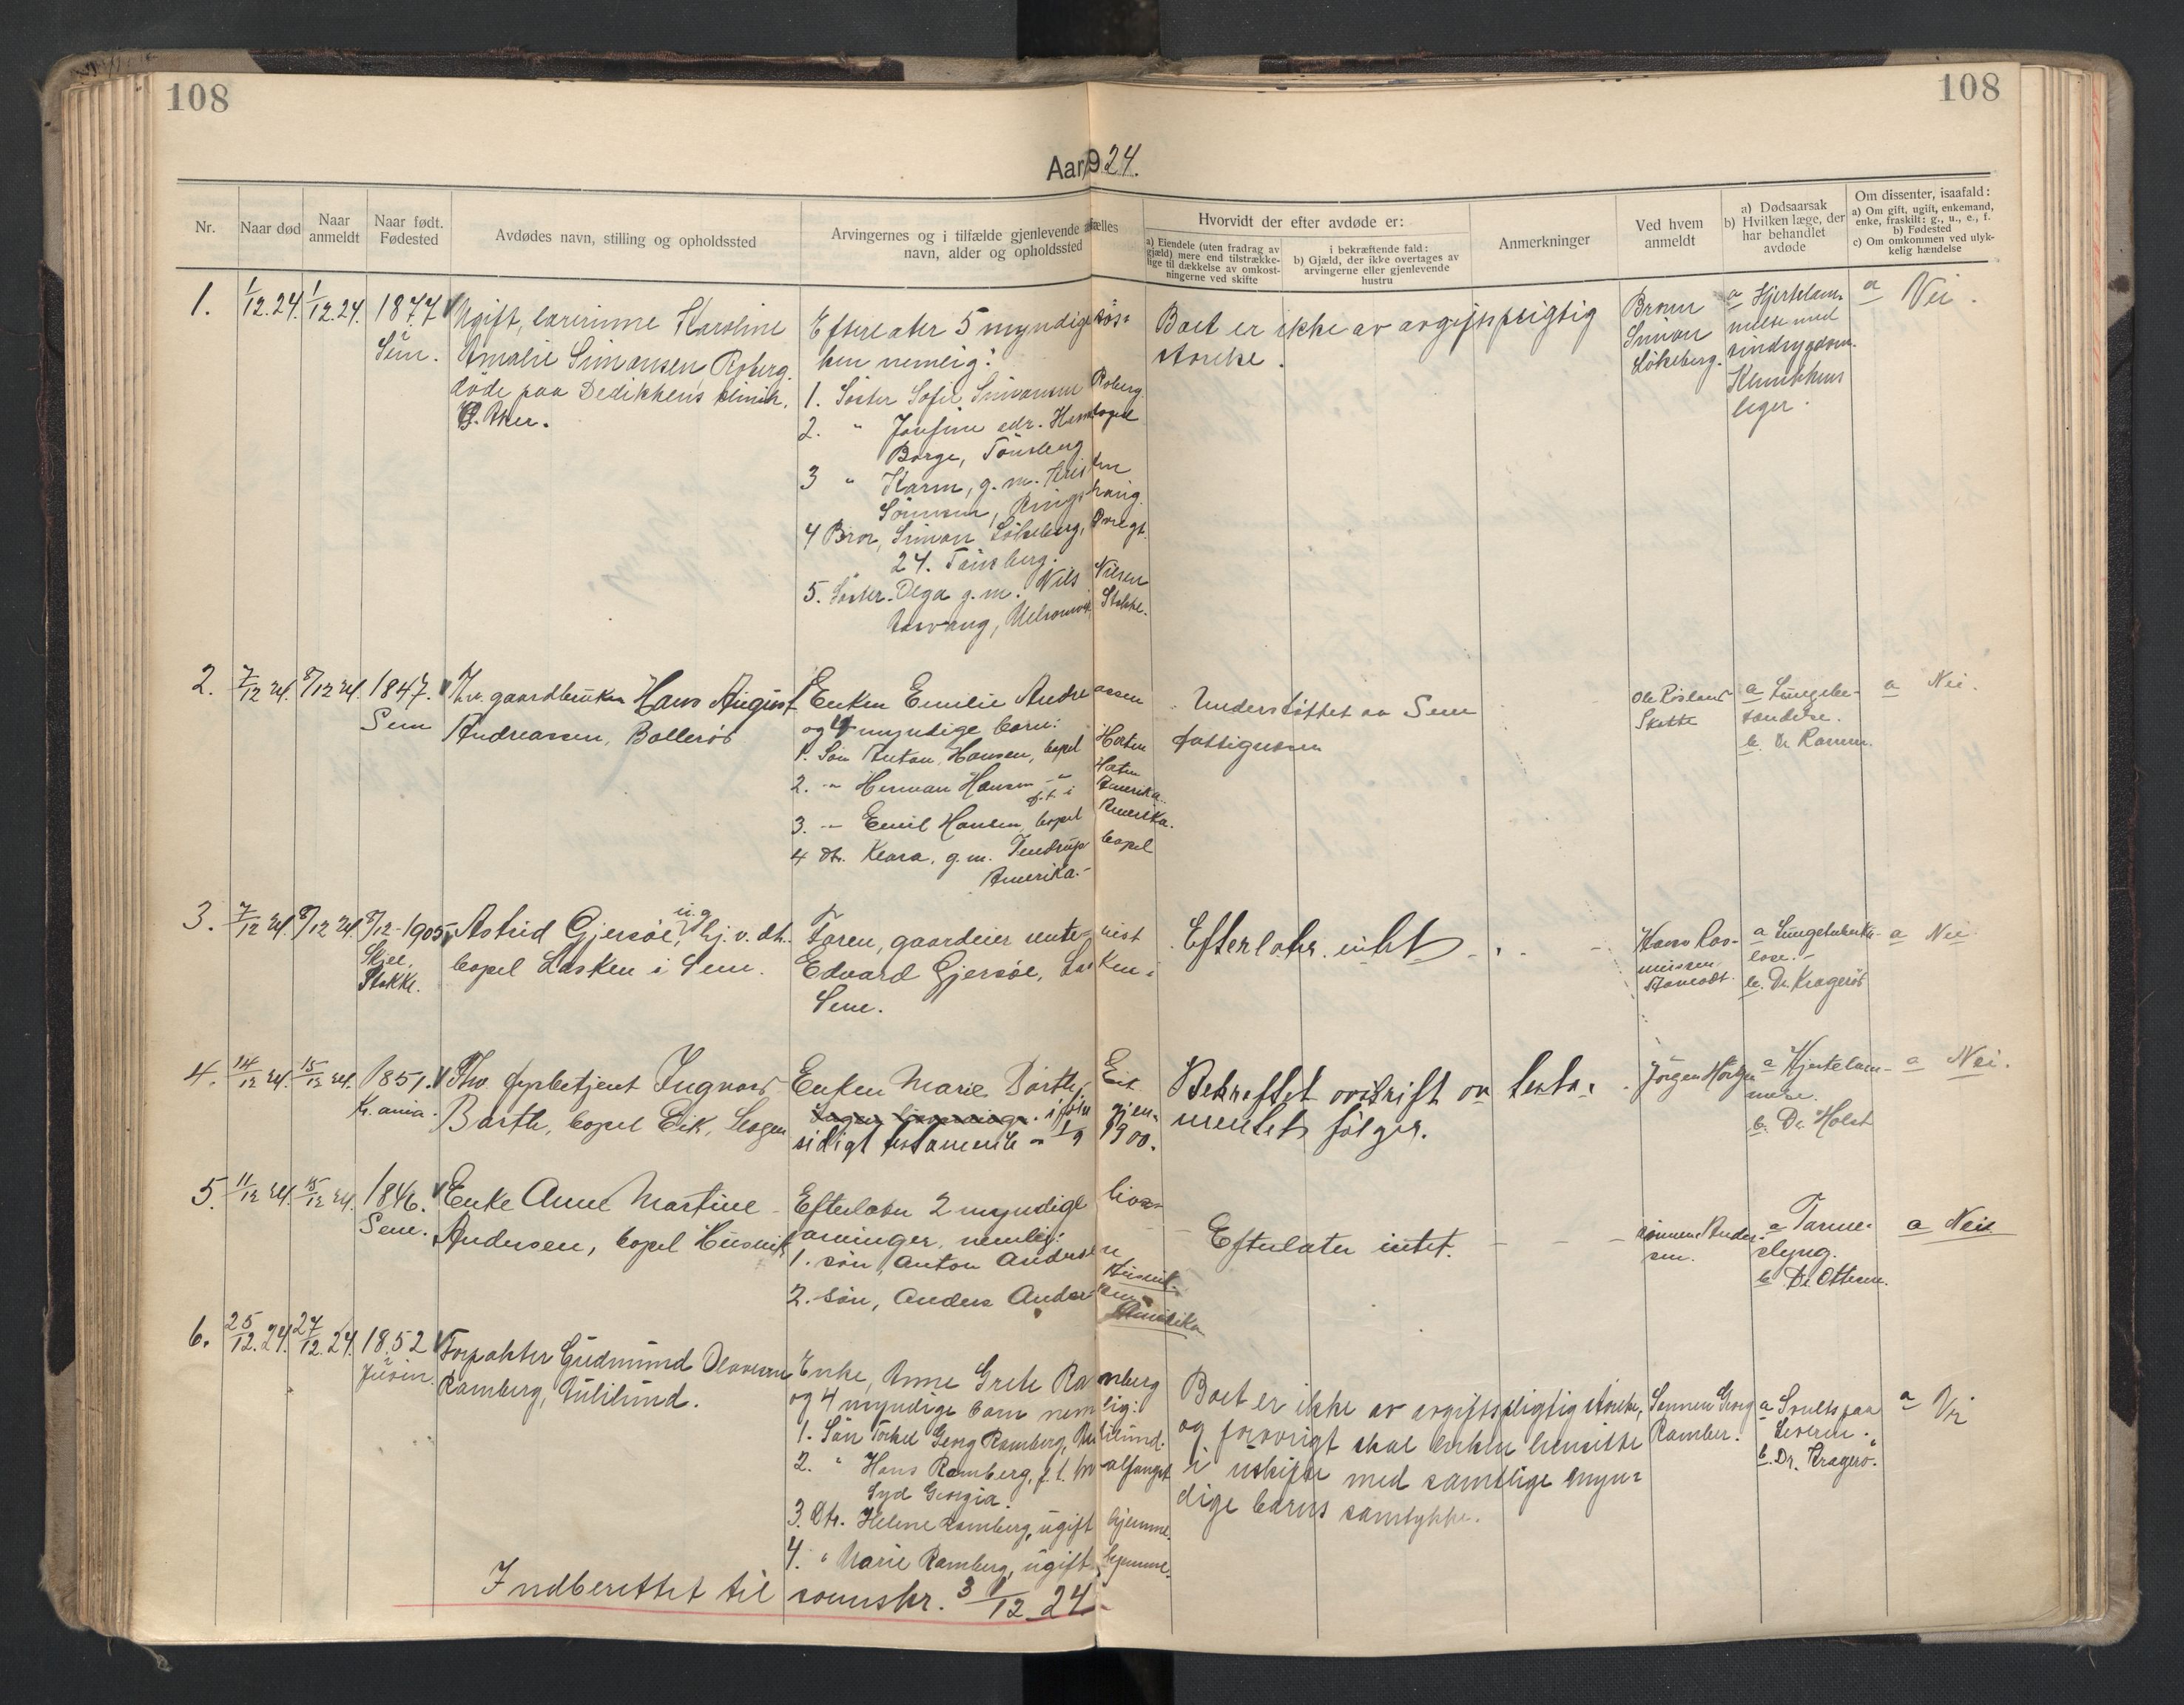 108
108
Aar 1924.
Nr.
Naar død
Naar anmeldt
Naar født. Fødested
Avdødes navn, stilling og opholdssted
Arvingernes og i tilfælde gjenlevende ælles
navn, alder og opholdssted
Hvorvidt der efter avdøde er:
a) Eiendele (uten fradrag av
gjæld) mere end tilstrække-
lige til dækkelse av omkost-
ningerne ved skifte
i bekræftende fald:
b) Gjæld, der ikke overtages av
arvingerne eller gjenlevende
hustru
Anmerkninger
Ved hvem
anmeldt
a) Dødsaarsak
b) Hvilken læge, der
har behandlet
avdøde
Om dissenter, isaafald:
a) Om gift, ugift, enkemand,
enke, fraskilt: g., u., e., f.
b) Fødested
c) Om omkommen ved ulyk-
kelig hændelse
1.
1/12.24.
1/12.24.
1877
Sem.
Ugift, lærerinne Karoline
Amalie Simonsen, Roberg.
døde paa Dedikhens klinik,
V. Aker.
Efterlater 5 myndige søs-
ken nemlig:
1. Søster Sofie Simonsen Roberg.
2. " Josefine adr.
Borge, Tønsberg
3 " Karen, g. m.
Sönnsen, Ringshaug.
4 Bror, Simon Løkeberg,
24. Tønsberg.
5. Søster. Olga g. m. Nils Nilsen
Melsomvik, Stokke.
Boet er ikke av avgiftspligtig
størelse.
Broren
Simon
Løkeberg.
a Hjertelam-
melse med
Klinikkens
leger.
a Nei.
2.
7/12 24.
8/12 24.
1847.
Sem
Fhv. gaardbruker Hans August
Andreassen, Bollerød
Enken Emilie Andreassen
og 4 myndige barn:
1. Søn Anton Hansen, bopel Horten
2. " Herman Hansen " Horten
f. t. i Amerika.
3. " Emil Hansen, bopel Amerika.
4 Dt. Klara, g. m. Tendrup bopel
Amerika.
Understøttet av Sem
fattigvesen
Ole Røsland
Skatte
a Lungebe-
tændelse.
b. Dr
a Nei.
3.
7/12 24.
8/12 24.
8/12-1905
Skjee,
Stokke.
Astrid Gjersøe, ug. hj. v. dt.
bopel Lasken i Sem.
Faren, gaardeier
Edvard Gjersøe, Lasken i
Sem.
Efterlater intet
Hans Ras-
mussen
a Lungetuberku-
lose.
b. Dr Kragerø
a Nei
4.
14/12 24.
15/12 24.
1851.
Kr.ania.
Fhv. fyrbetjent Ingvard
Barth, bopel Eik, Slagen
Enken Marie Barth, Eik
Ingen livsarvinger. ifölge gjen-
sidigt testamente av 1/9 1900.
Bekreftet avskrift av testa-
mentet følger.
Jørgen
a Hjertelam-
melse.
b. Dr. Holst
a Nei.
5.
11/12 24.
15/12 24.
1846.
Sem.
Enke Anne Martine
Andersen, bopel Husvik
Efterlater 2 myndige livs-
arvinger, nemlig:
1. søn, Anton Andersen
Husvik
2. søn, Anders Andersen
Amerika
Efterlater intet.
sønnen Ander-
sen.
a Tarm-
slyng.
b Dr. Ottesen.
a Nei
6.
25/12.24.
27/12.24.
1852
Forpakter Gudmund Olavesen
Ramberg, Aulilund.
Enke, Anne Grete Ramberg
og 4 myndige barn nemlig:
1. Søn Torkel Georg Ramberg, Aulilund.
2. " Hans Ramberg, f. t. hvalfangst
Syd Georgia.
3. Dtr. Helene Ramberg, ugift hjemme.
4. " Marie Ramberg, ugift, hjemme.
Boet er ikke av avgiftspligtig størelse,
og forøvrigt skal enken hensitte
i uskifte med samtlige myn-
dige barns samtykke.
Sønnen Georg
Ramber.
a Svulst paa
leveren.
b. Dr. Kragerø.
a Nei
Indberettet til sorenskr. 31/12 24.